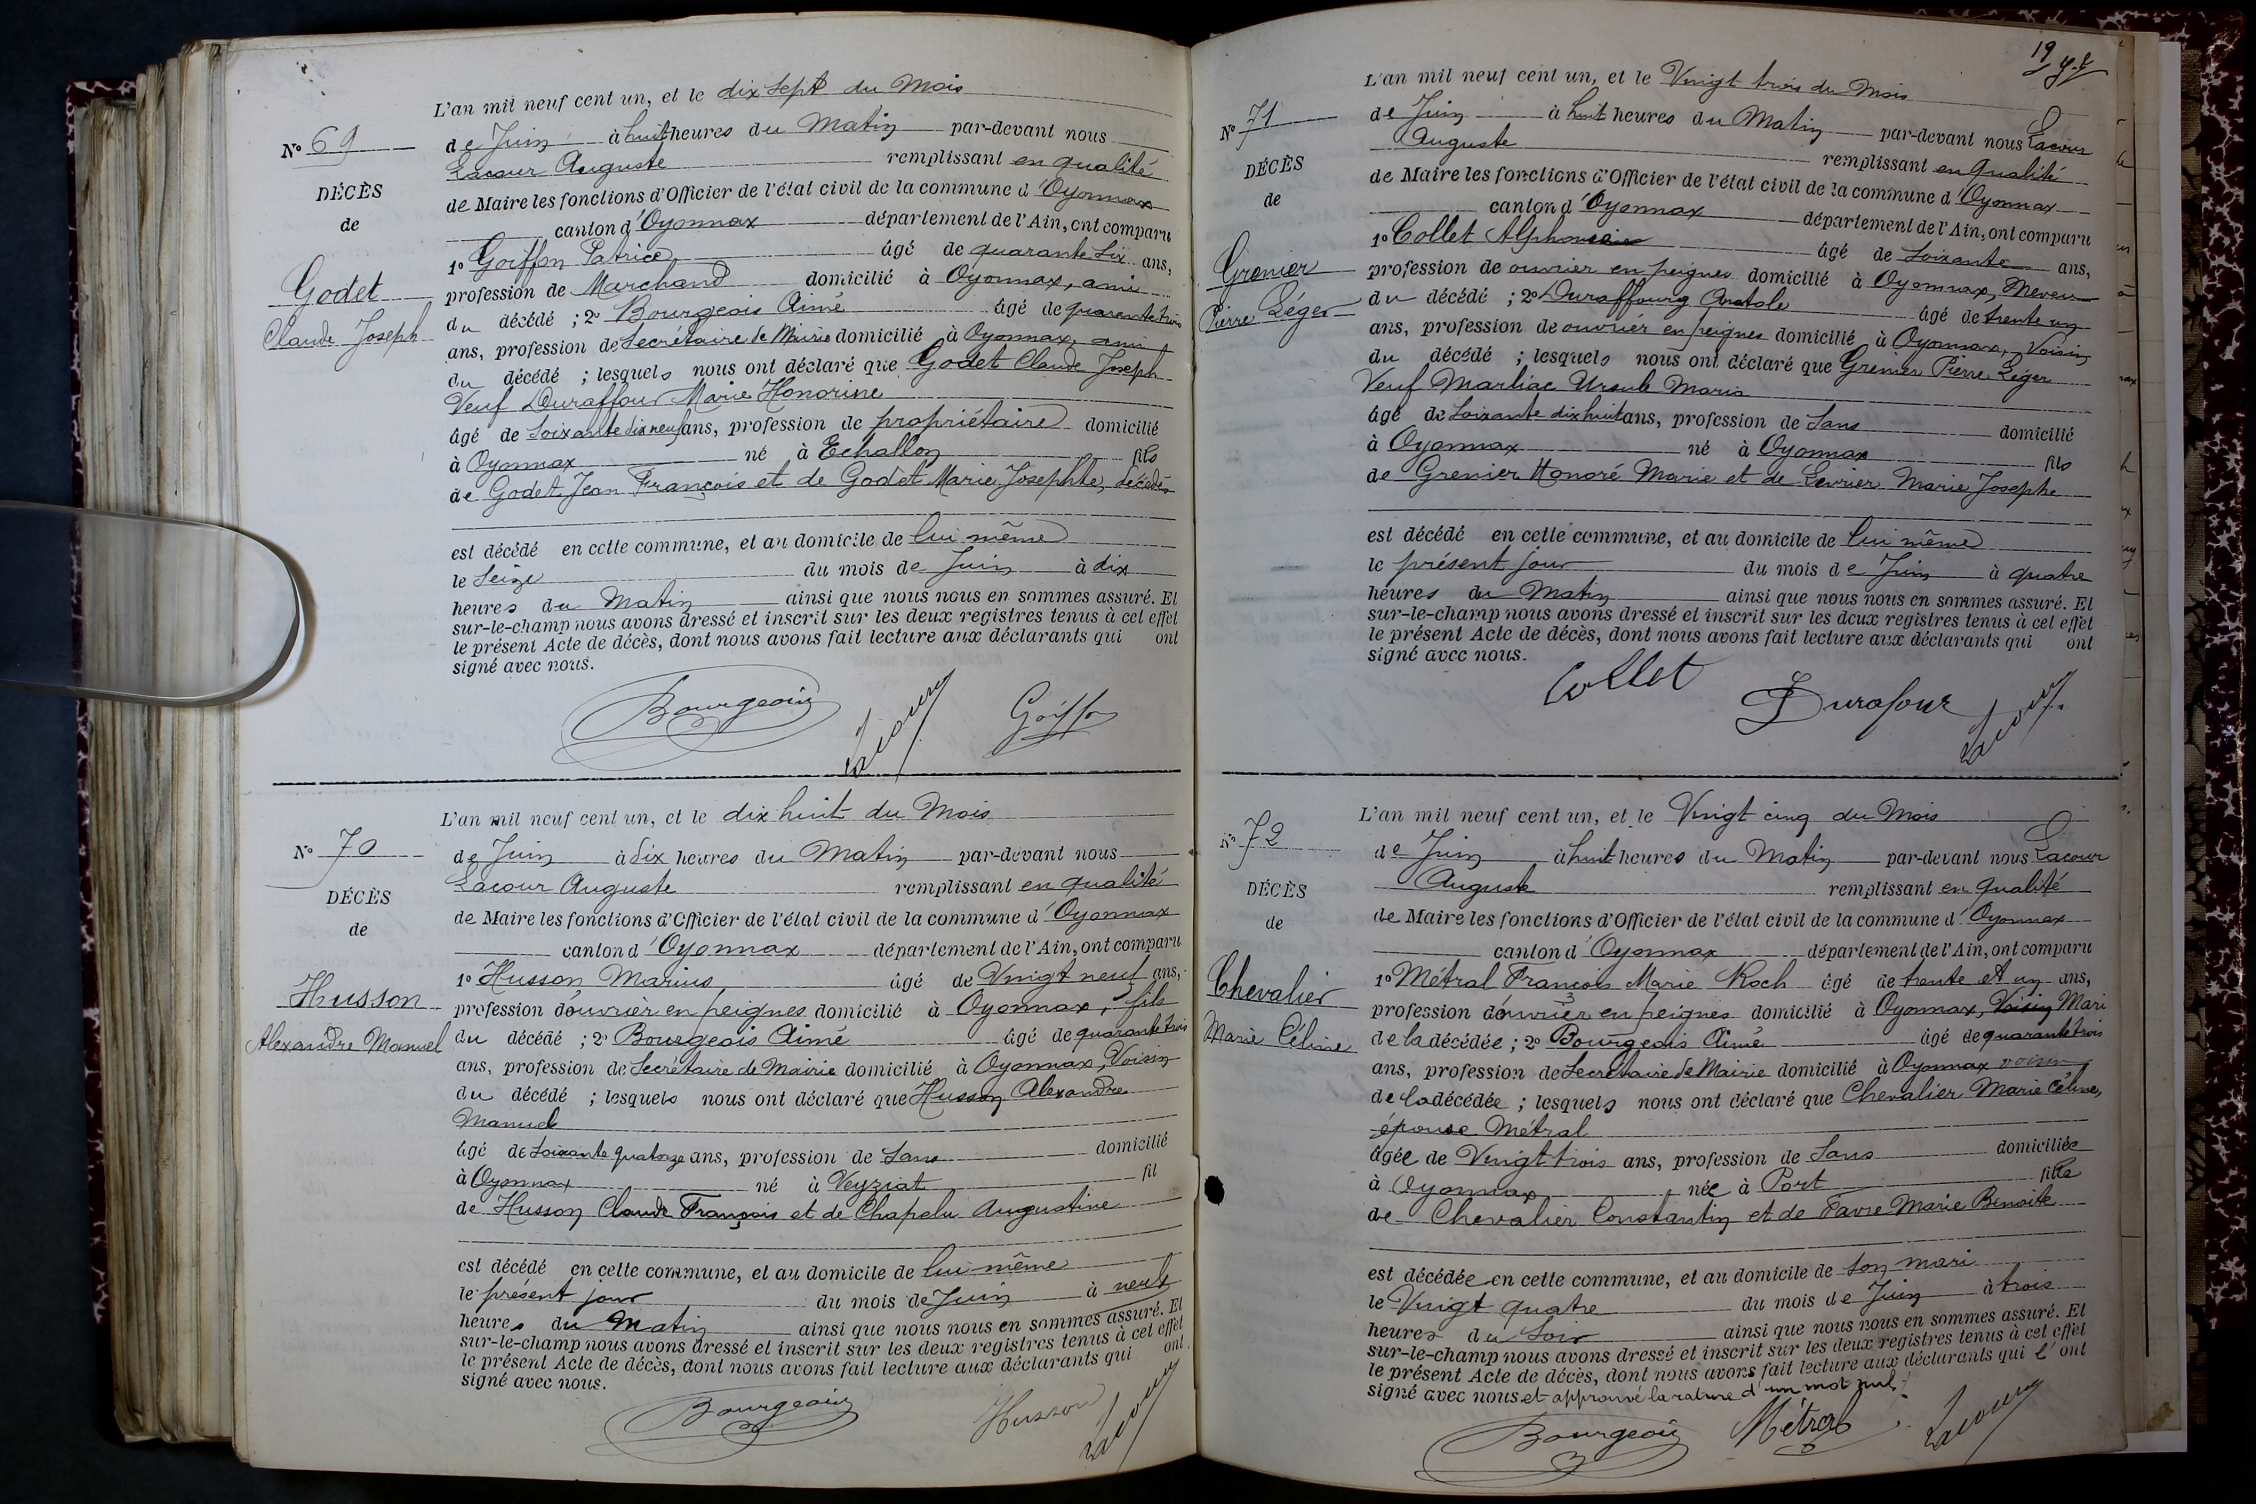 L'an mil neuf cent un, et le dix sept du Mois
No 69
de Juin à huit heures du Matin par-devant nous
Lacour Auguste remplissant en qualité
DÉCÈS
de Maire les fonctions d'Officier de l'état civil de la commune d'Oyonnax
de
canton d'Oyonnax département de l'Ain, ont comparu
1o Goiffon Patrice âgé de quarante six ans,
Godet
profession de Marchand domicilié à Oyonnax, ami
Claude Joseph
du décédé ; 2o Bourgeois Aimé âgé de quarante trois
ans, profession de Secrétaire de Mairie domicilié à Oyonnax, ami
du décédé ; lesquels nous ont déclaré que Godet Claude Joseph
Veuf Duraffour Marie Honorine
âgé de Soixante dix neuf ans, profession de propriétaire domicilié
à Oyonnax né à Echallon fils
de Godet Jean François et de Godet Marie Josephte, décédés
est décédé en cette commune, et au domicile de lui même
le Seize du mois de Juin à dix
heures du Matin ainsi que nous nous en sommes assuré. Et
sur-le-champ nous avons dressé et inscrit sur les deux registres tenus à cet effet
le présent Acte de décès, dont nous avons fait lecture aux déclarants qui ont
signé avec nous.
Bourgeois Lacour Goiffon
L'an mil neuf cent un, et le dix huit du Mois
No 70
de Juin à dix heures du Matin par-devant nous
Lacour Auguste remplissant en qualité
DÉCÈS
de Maire les fonctions d'Officier de l'état civil de la commune d'Oyonnax
de
canton d'Oyonnax département de l'Ain, ont comparu
1o Husson Marius âgé de Vingt neuf ans,
Husson
profession d'ouvrier en peignes domicilié à Oyonnax, fils
Alexandre Manuel
du décédé ; 2o Bourgeois Aimé âgé de quarante trois
ans, profession de Secrétaire de Mairie domicilié à Oyonnax, Voisin
du décédé ; lesquels nous ont déclaré que Husson Alexandre
Manuel
âgé de Soixante quatorze ans, profession de Sans domicilié
à Oyonnax né à Veyziat fil
de Husson Claude François et de Chapelu Augustine
est décédé en cette commune, et au domicile de lui même
le présent jour du mois de Juin à neuf
heures du Matin ainsi que nous nous en sommes assuré. Et
sur-le-champ nous avons dressé et inscrit sur les deux registres tenus à cet effet
le présent Acte de décès, dont nous avons fait lecture aux déclarants qui ont
signé avec nous.
Bourgeois Husson Lacour
19
L'an mil neuf cent un, et le Vingt trois du Mois
No 71
de Juin à huit heures du Matin par-devant nous Lacour
Auguste remplissant en qualité
DÉCÈS
de Maire les fonctions d'Officier de l'état civil de la commune d'Oyonnax
de
canton d'Oyonnax département de l'Ain, ont comparu
1o Collet Alphonse âgé de Soixante ans,
Grenier
profession de ouvrier en peignes domicilié à Oyonnax, Neveu
Pierre Léger
du décédé ; 2o Duraffourg Anatole âgé de trente un
ans, profession de ouvrier en peignes domicilié à Oyonnax, Voisin
du décédé ; lesquels nous ont déclaré que Grenier Pierre Léger
Veuf Marliac Ursule Maria
âgé de Soixante dix huit ans, profession de Sans domicilié
à Oyonnax né à Oyonnax fils
de Grenier Honoré Marie et de Levrier Marie Josephe
est décédé en cette commune, et au domicile de lui même
le présent jour du mois de Juin à quatre
heures du Matin ainsi que nous nous en sommes assuré. Et
sur-le-champ nous avons dressé et inscrit sur les deux registres tenus à cet effet
le présent Acte de décès, dont nous avons fait lecture aux déclarants qui ont
signé avec nous.
Collet Durafour Lacour
L'an mil neuf cent un, et le Vingt cinq du Mois
No 72
de Juin à huit heures du Matin par-devant nous Lacour
Auguste remplissant en qualité
DÉCÈS
de Maire les fonctions d'Officier de l'état civil de la commune d'Oyonnax
de
canton d'Oyonnax département de l'Ain, ont comparu
1o Métral François Marie Roch âgé de trente et un ans,
Chevalier
profession d'ouvrier en peignes domicilié à Oyonnax, Voisin Mari
Marie Céline
de la décédée ; 2o Bourgeois Aimé âgé de quarante trois
ans, profession de Secrétaire de Mairie domicilié à Oyonnax voisin
de la décédée ; lesquels nous ont déclaré que Chevalier Marie Céline,
épouse Métral
âgée de Vingt trois ans, profession de Sans domiciliée
à Oyonnax née à Port fille
de Chevalier Constantin et de Favre Marie Benoite
est décédée en cette commune, et au domicile de son mari
le Vingt quatre du mois de Juin à trois
heures du Soir ainsi que nous nous en sommes assuré. Et
sur-le-champ nous avons dressé et inscrit sur les deux registres tenus à cet effet
le présent Acte de décès, dont nous avons fait lecture aux déclarants qui l'ont
signé avec nous et approuvé la rature d'un mot nul.
Bourgeois Métral Lacour